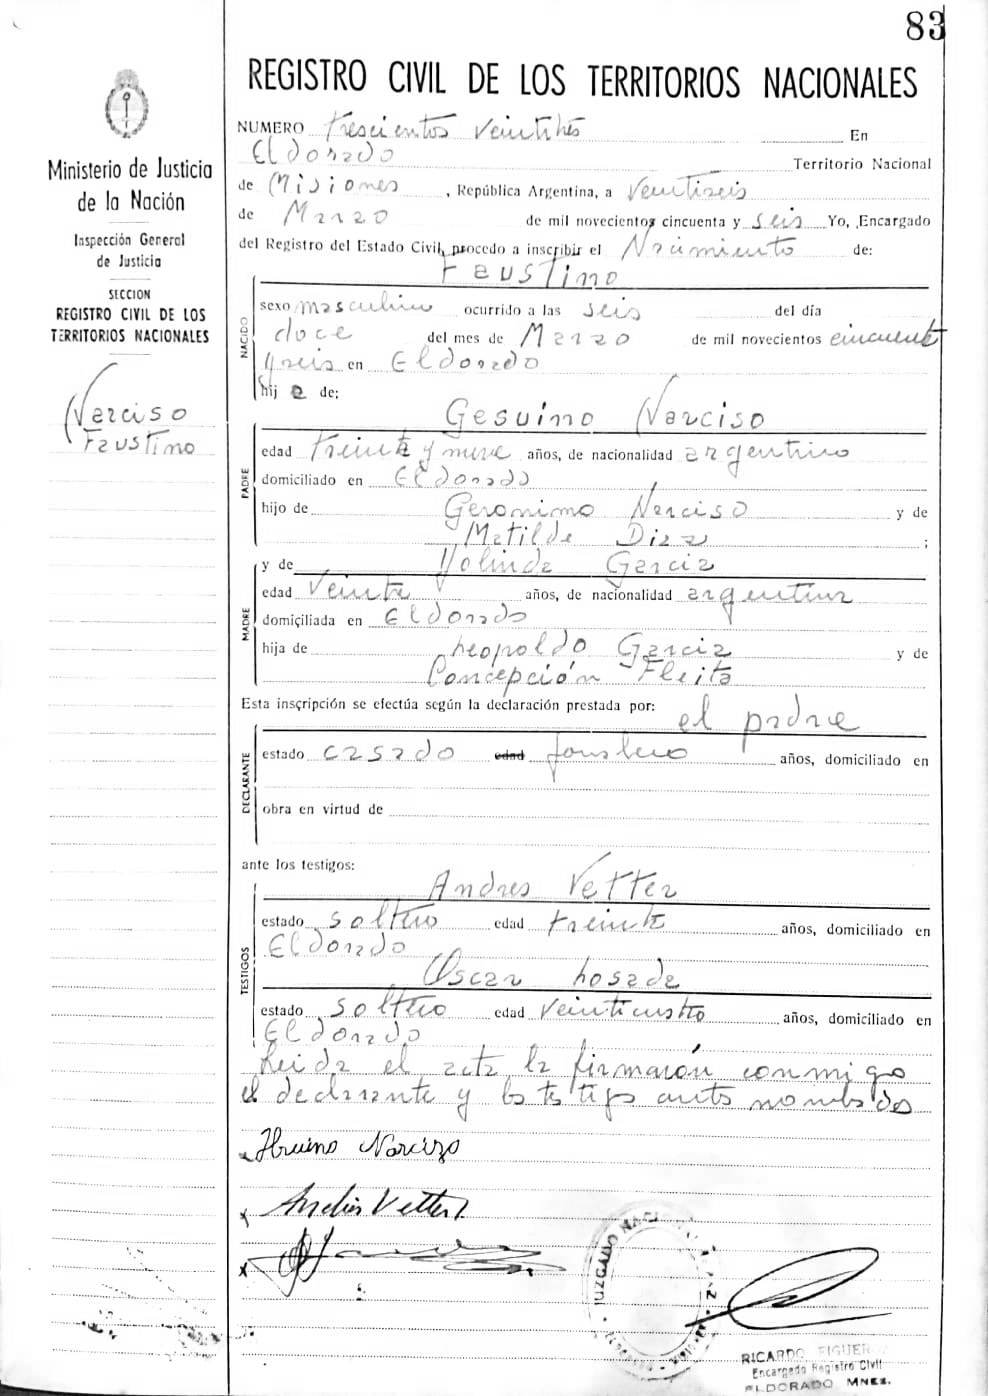 83
REGISTRO CIVIL DE LOS TERRITORIOS NACIONALES
Ministerio de Justicia
de la Nación
Inspección General
de Justicia
SECCION
REGISTRO CIVIL DE LOS
TERRITORIOS NACIONALES
Narciso
Faustino
NUMERO trescientos veintitrés En
Eldorado Territorio Nacional
de Misiones, República Argentina, a veintiseis
de Marzo de mil novecientos cincuenta y seis Yo, Encargado
del Registro del Estado Civil, procedo a inscribir el Nacimiento de:
Faustino
NACIDO
sexo masculino ocurrido a las seis del día
doce del mes de Marzo de mil novecientos cincuenta
y seis en Eldorado
hijo de:
Gesuino Narciso
PADRE
edad treinta y nueve años, de nacionalidad argentino
domiciliado en Eldorado
hijo de Geronimo Narciso y de
Matilde Diaz ;
y de Yolinda Garcia
MADRE
edad veinte años, de nacionalidad argentina
domiciliada en Eldorado
hija de Leopoldo Garcia y de
Concepción Fleita
Esta inscripción se efectúa según la declaración prestada por: el padre
DECLARANTE
estado casado edad años, domiciliado en
obra en virtud de
ante los testigos:
Andres Vetter
TESTIGOS
estado soltero edad treinta años, domiciliado en
Eldorado
Oscar Losada
estado soltero edad veinticuatro años, domiciliado en
Eldorado
Leida el acta la firmarón conmigo
el declarante y los testigos antes nombrados
Narcizo
Andrés Vetter
JUZGADO
RICARDO FIGUER
Encargado Registro Civil
ELDORADO MNES.